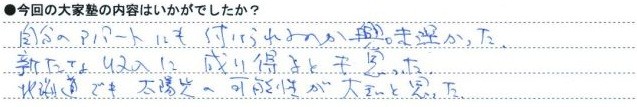 ●今回の大家塾の内容はいかがでしたか?
自分のアパートにも付けられるのか興味深かった。
新たな収入に成り得るとも思った
北海道でも太陽光の可能性が大きいと思った